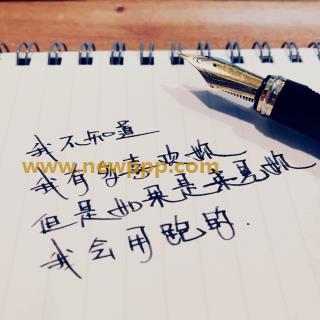 我不知道
我有多喜欢你
www.newppp.com
但是如果是来见你
我会用跑的.